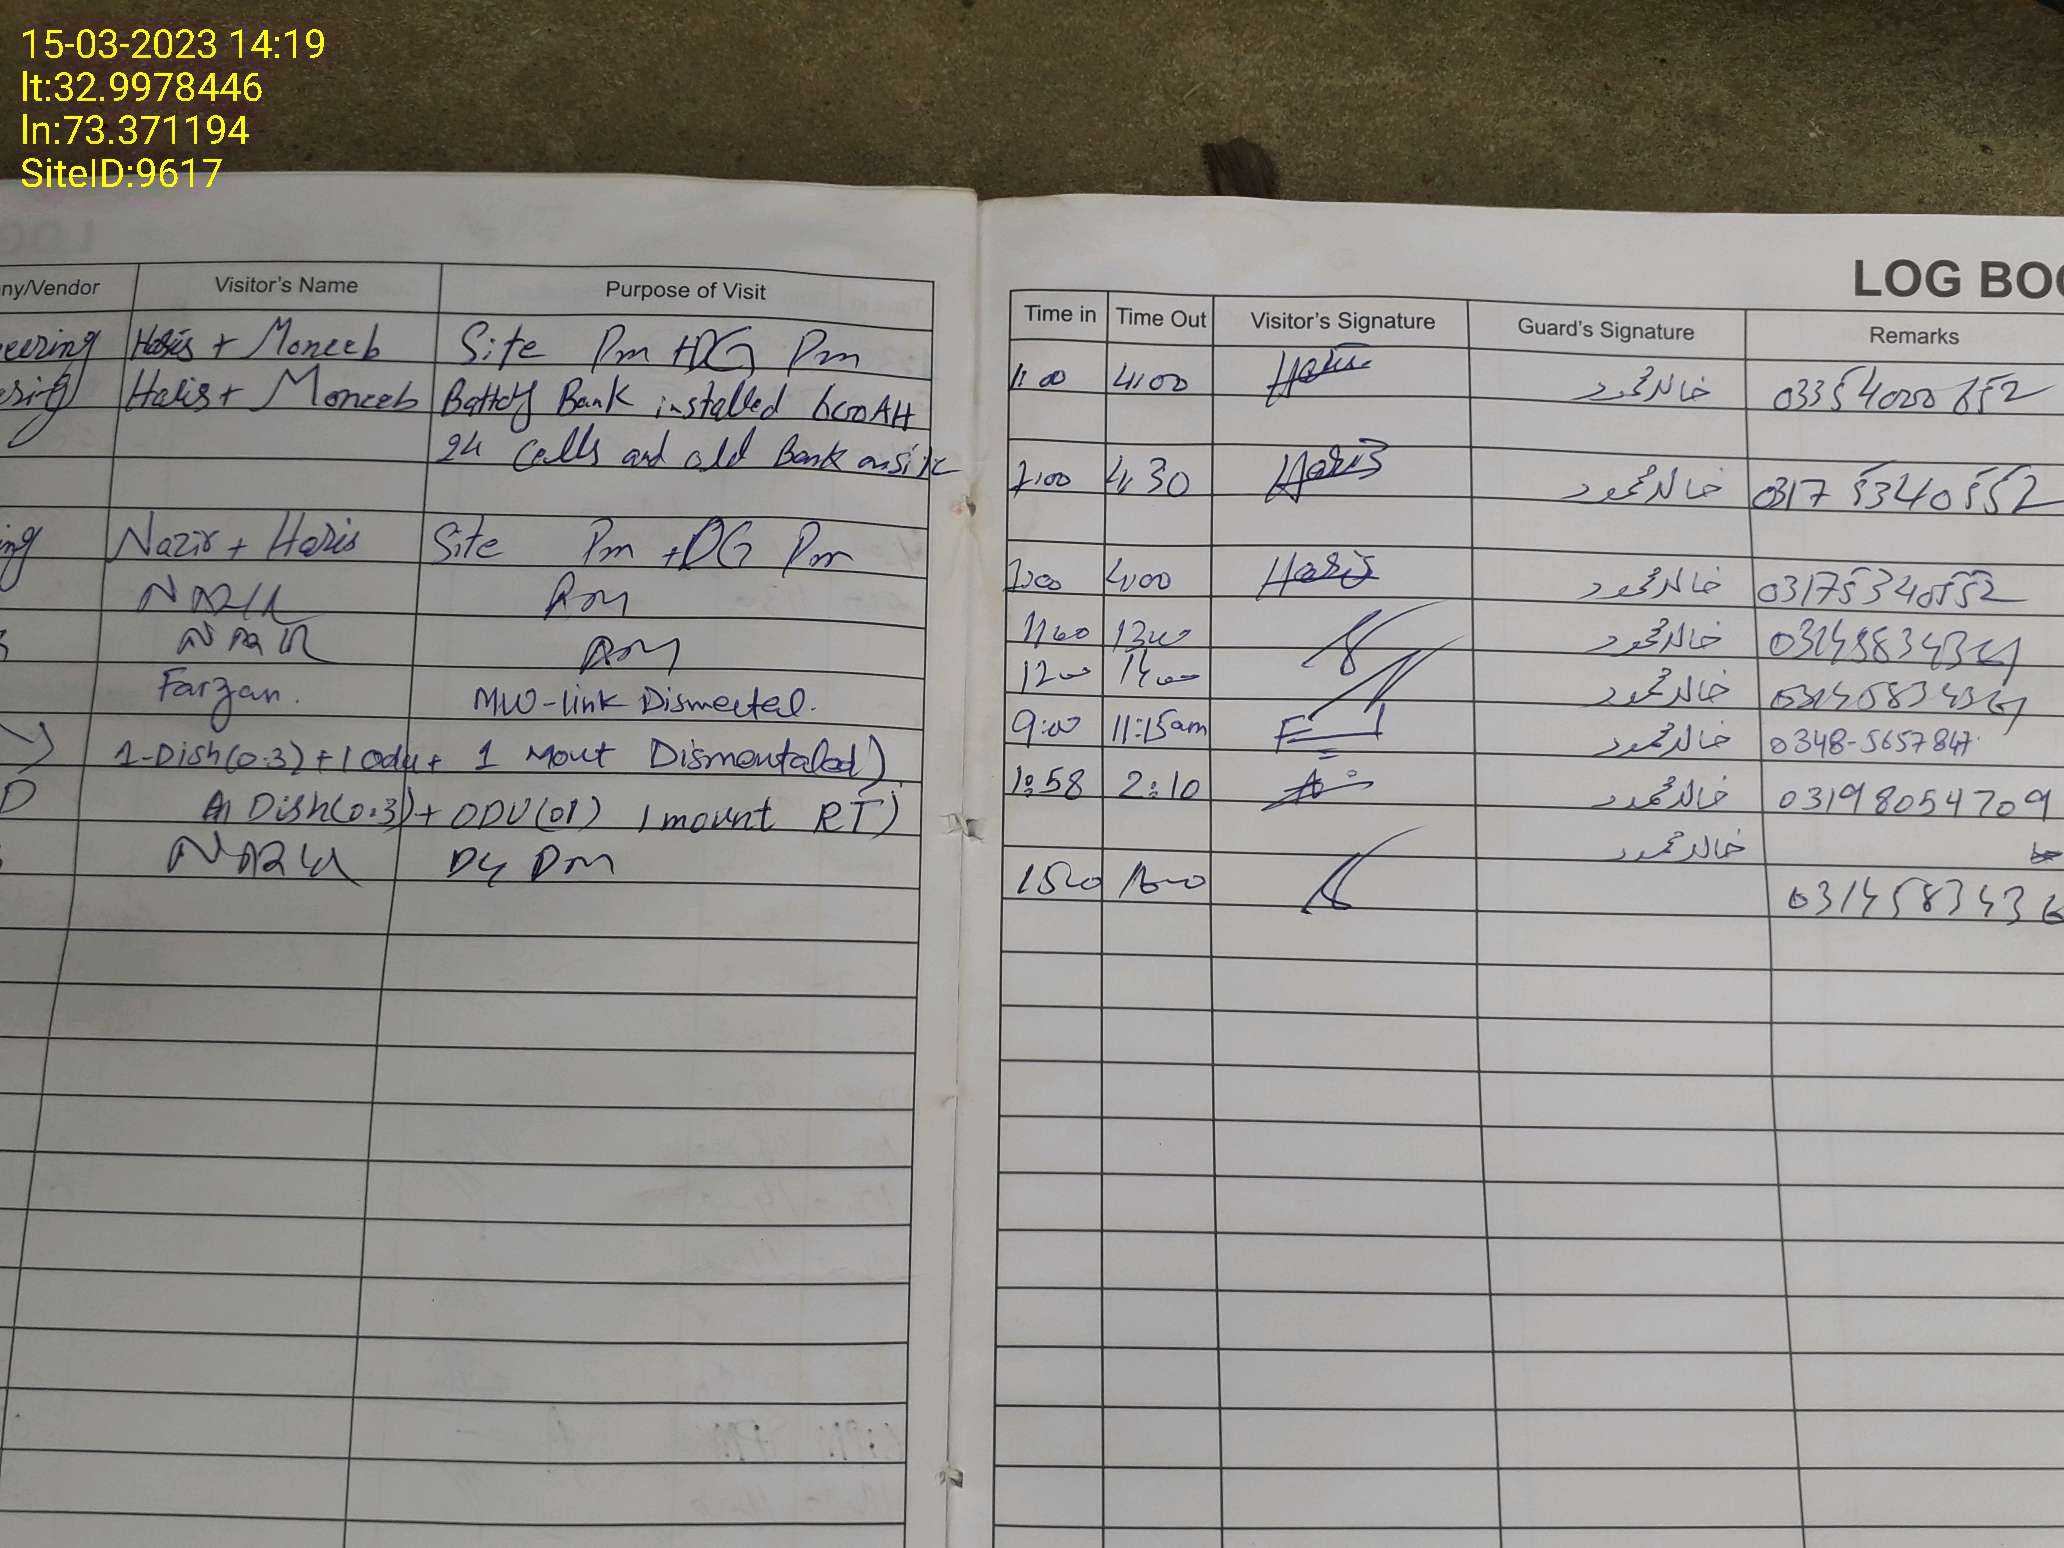 15-03-2023 14:19
lt:32.9978446
ln:73.371194
SiteID:9617
ny/Vendor Visitor's Name Purpose of Visit
eering Haris + Moneeb Site Pm + DG Pm
Haris + Moneeb Battery Bank installed 600AH
24 Cells and old Bank onsite
ing Nazir + Haris Site Pm + DG Pm
Farzan. MW-link Dismected.
1-Dish(0.3)+1 odu+ 1 Mout Dismentaled)
D Dish(0.3)+ ODU(01) 1 mount RT)
LOG BOO
Time in Time Out Visitor's Signature Guard's Signature Remarks
11:00 4:00 Haris خالد محمود 03354000652
4:30 Haris خالد محمود 03175340552
4:00 Haris خالد محمود 03175340552
خالد محمود
1200 1400 خالد محمود
9:00 11:15am خالد محمود 0348-5657847
1:58 2:10 خالد محمود 03198054709
خالد محمود
0314583436